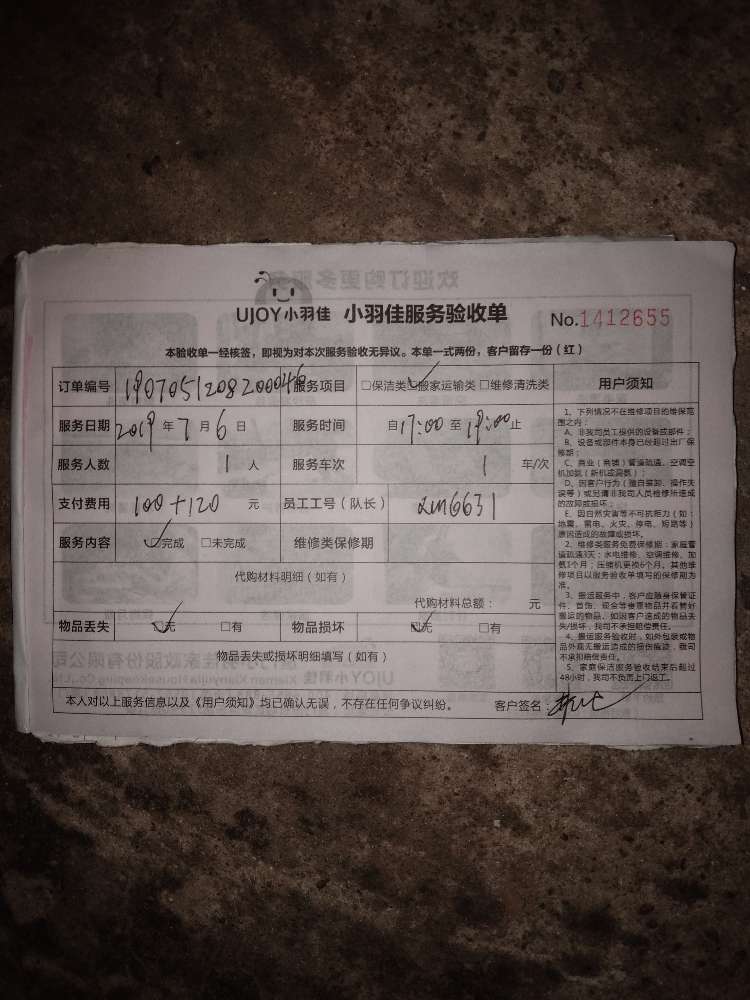 UJOY小羽佳 小羽佳服务验收单 No.1412655
本验收单一经核签，即视为对本次服务验收无异议。本单一式两份，客户留存一份（红）
订单编号 1907051208200046 服务项目 □保洁类 ☑搬家运输类 □维修清洗类
服务日期 2019 年 7 月 6 日 服务时间 自 17:00 至 19:00 止
服务人数 1 人 服务车次 1 车/次
支付费用 100+120 元 员工工号（队长） 2m6631
服务内容 ☑完成 □未完成 维修类保修期
代购材料明细（如有）
代购材料总额： 元
物品丢失 ☑无 □有 物品损坏 ☑无 □有
物品丢失或损坏明细填写（如有）
本人对以上服务信息以及《用户须知》均已确认无误，不存在任何争议纠纷。 客户签名：
用户须知
1、下列情况不在维修项目的维保范
围之内：
A、非我司员工提供的设备或部件；
B、设备或部件本身已经超过出厂保
修期；
C、商业（商铺）管道疏通、空调空
机加氨（新机或漏氨）；
D、因客户行为（擅自装卸、操作失
误等）或另请非我司人员检修所造成
的故障或损坏；
E、因自然灾害等不可抗拒力（如：
地震、雷电、火灾、停电、短路等）
原因造成的故障或损坏。
2、维修类服务免费保修期：家庭管
道疏通3天；水电维修、空调维修、加
氨1个月；压缩机更换6个月。其他维
修项目以服务验收单填写的保修期为
准。
3、搬运服务中，客户应随身保管证
件、首饰、现金等贵重物品并看管好
搬运的物品，如因客户造成的物品丢
失/损坏，我司不承担赔偿责任。
4、搬运服务验收时，如外包装或物
品外观无搬运造成的损伤痕迹，我司
不承担赔偿责任。
5、家庭保洁服务验收结束后超过
48小时，我司不负责上门返工。